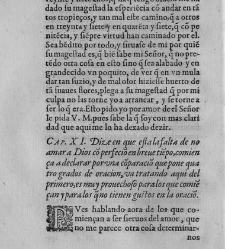 dado su magestad la esperiécia có andar en tá
tos tropieços, y tan mal este camino, q̃ a otros
en treynta y siete, y en quaréta y siete, q̃ có pe
nitécia, y siépre virtud han caminado por el.
Sea bédito por todo, y siruase de mi por quié
su magestad es, q̃ bié sabe mi Señor, q̃ no pre-
tédo otra cosa en esto sino q̃ sea alabado y en
grandecido vn poquito, de ver q̃ en vn mula
dar tan suzio, y de mal olor hiziesse huerto de
tá suaues flores, plega a su magestad q̃ por mi
culpa no las torne yo a arrancar, y se torne a
ser lo q̃ era. Esto pido yo por amor del Señor
le pida V. M. pues sabe la q̃ soy con mas clari
dad que aqui me lo ha dexado dezir.
CAP. XI. Dize en que esta la falta de no
amar a Dios có perfeció en breue tiépo, comien
ça a declarar por vna cóparació que pone qua
tro grados de oracion, va tratando aqui del
primero, es muy prouechoso para los que comié
çan y para los q̃ no tienen gustos en la oració.
PVes hablando aora de los que co-
miençan a ser sieruos del amor, que
no me parece otra cosa determinar-
nos